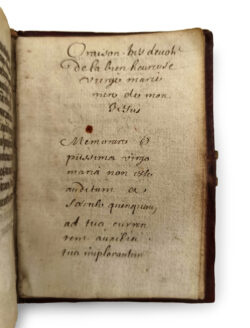 Oraison tres devote
de la bien heureuse
vierge marie
mere de mon
Memorare O
piissima virgo
maria non esse
auditum a
saeculo quenquam
ad tua curren
tem auxilia
tua implorantem